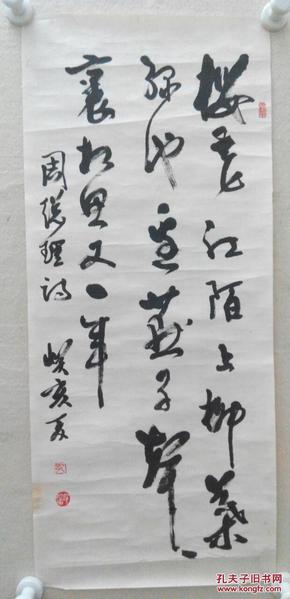 樱花红陌上柳叶
绿池边燕子声
里相思又一年
周总理诗 癸亥夏
孔夫子旧书网
www.kongfz.com